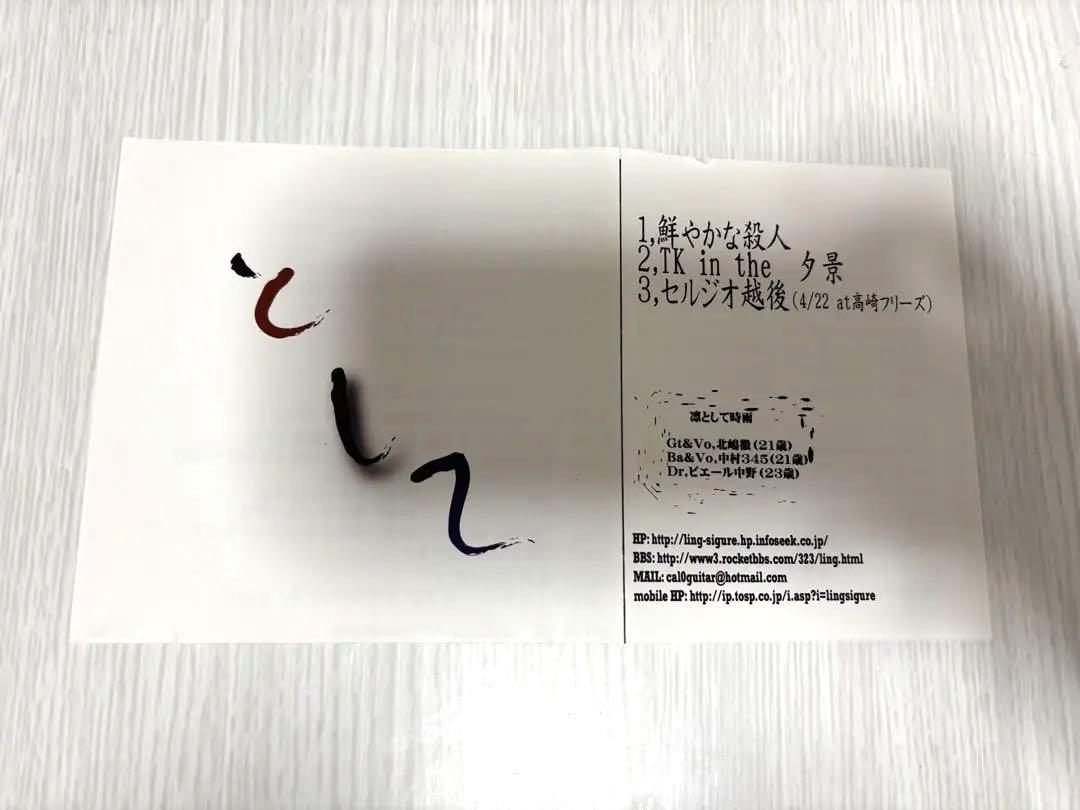 として
1,鮮やかな殺人
2,TK in the 夕景
3,セルジオ越後(4/22 at高崎フリーズ)
凛として時雨
Gt&Vo,北嶋徹(21歳)
Ba&Vo,中村345(21歳)
Dr,ピエール中野(23歳)
HP: http://ling-sigure.hp.infoseek.co.jp/
BBS: http://www3.rocketbbs.com/323/ling.html
MAIL: cal0guitar@hotmail.com
mobile HP: http://ip.tosp.co.jp/i.asp?i=lingsigure